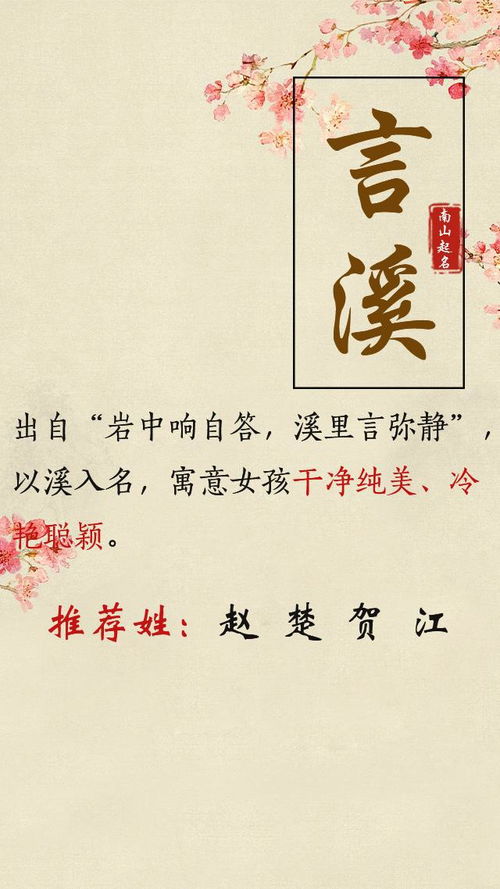 言溪
南山起名
出自“岩中响自答，溪里言弥静”，
以溪入名，寓意女孩干净纯美、冷
艳聪颖。
推荐姓：赵 楚 贺 江